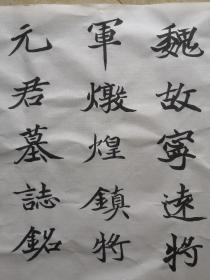 魏故寧遠將
軍燉煌鎮將
元君墓誌銘